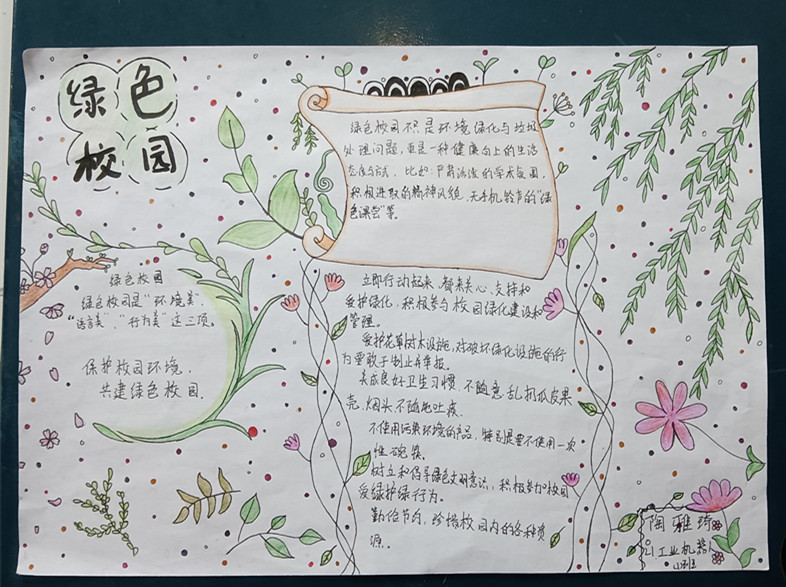 绿色
校园
绿色校园不只是环境绿化与垃圾
处理问题，更是一种健康向上的生活
积极进取的精神风貌，无手机铃声的“绿
色课堂”等。
绿色校园
绿色校园是“环境美”
“语言美”、“行为美”这三项。
保护校园环境，
共建绿色校园.
立即行动起来，都来关心、支持和
爱护绿化，积极参与校园绿化建设和
管理。
爱护花草树木设施，对破坏绿化设施的行
为要敢于制止并举报。
养成良好卫生习惯，不随意乱扔瓜皮果
壳、烟头不随地吐痰。
不使用污染环境的产品，特别是要不使用一次
性碗筷。
树立和倡导绿色文明意识，积极参加校园
爱绿护绿行为。
勤俭节约，珍惜校园内的各种资
源。
陶雅琦
21工业机器人